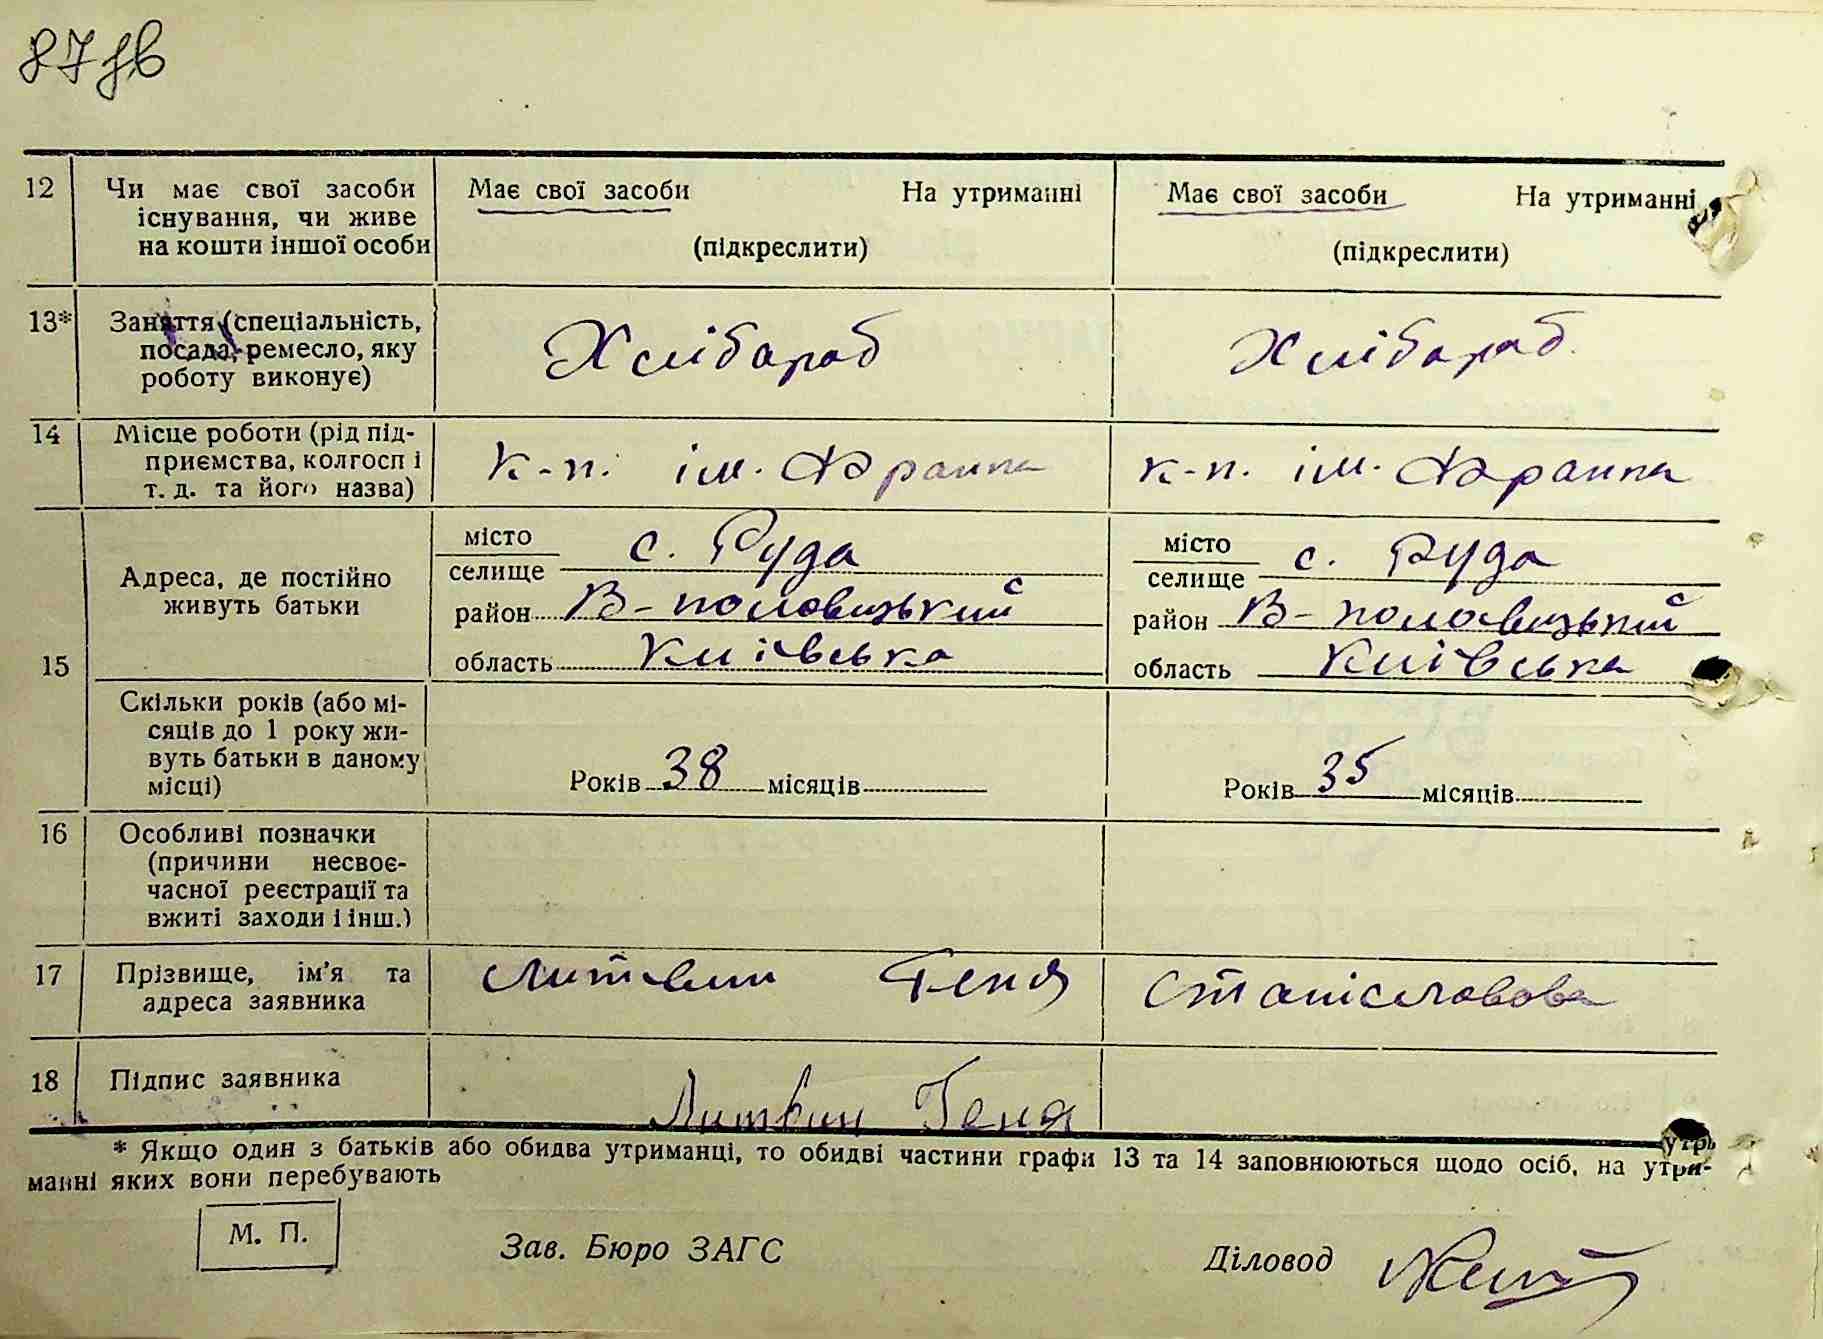 87 зв
12 Чи має свої засоби існування, чи живе на кошти іншої особи
Має свої засоби На утриманні
(підкреслити)
Має свої засоби На утриманні
(підкреслити)
13* Заняття (спеціальність, посада, ремесло, яку роботу виконує)
Хлібараб
Хлібараб
14 Місце роботи (рід підприємства, колгосп і т. д. та його назва)
к-п. ім. Франка
к-п. ім. Франка
15 Адреса, де постійно живуть батьки
місто
селище с. Руда
район В-половецький
область Київська
місто
селище с. Руда
район В-половецький
область Київська
Скільки років (або місяців до 1 року живуть батьки в даному місці)
Років 38 місяців
Років 35 місяців
16 Особливі позначки (причини несвоєчасної реєстрації та вжиті заходи і інш.)
17 Прізвище, ім’я та адреса заявника
Литвин Геня Станіславова
18 Підпис заявника
Литвин Геня
* Якщо один з батьків або обидва утриманці, то обидві частини графи 13 та 14 заповнюються щодо осіб, на утри-
манні яких вони перебувають
М. П.
Зав. Бюро ЗАГС
Діловод